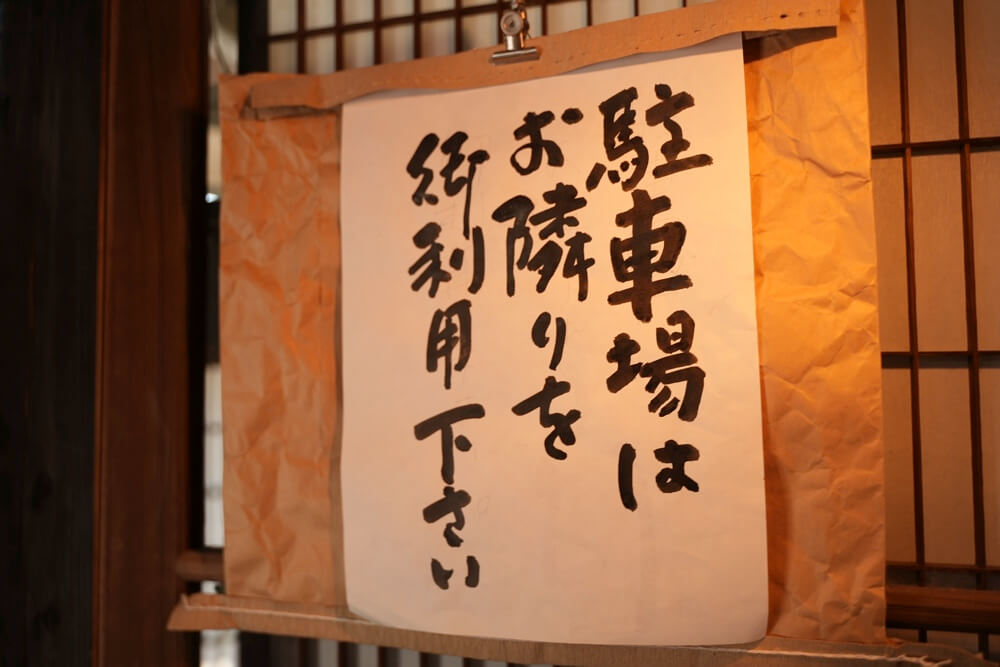 駐車場は
お隣りを
御利用下さい